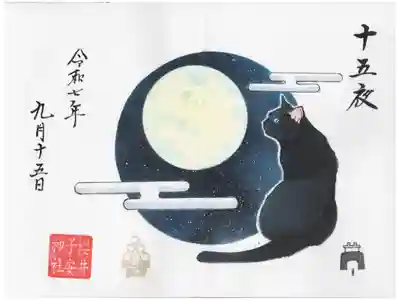 十五夜
令和七年
九月十五日
桜井
子安
神社